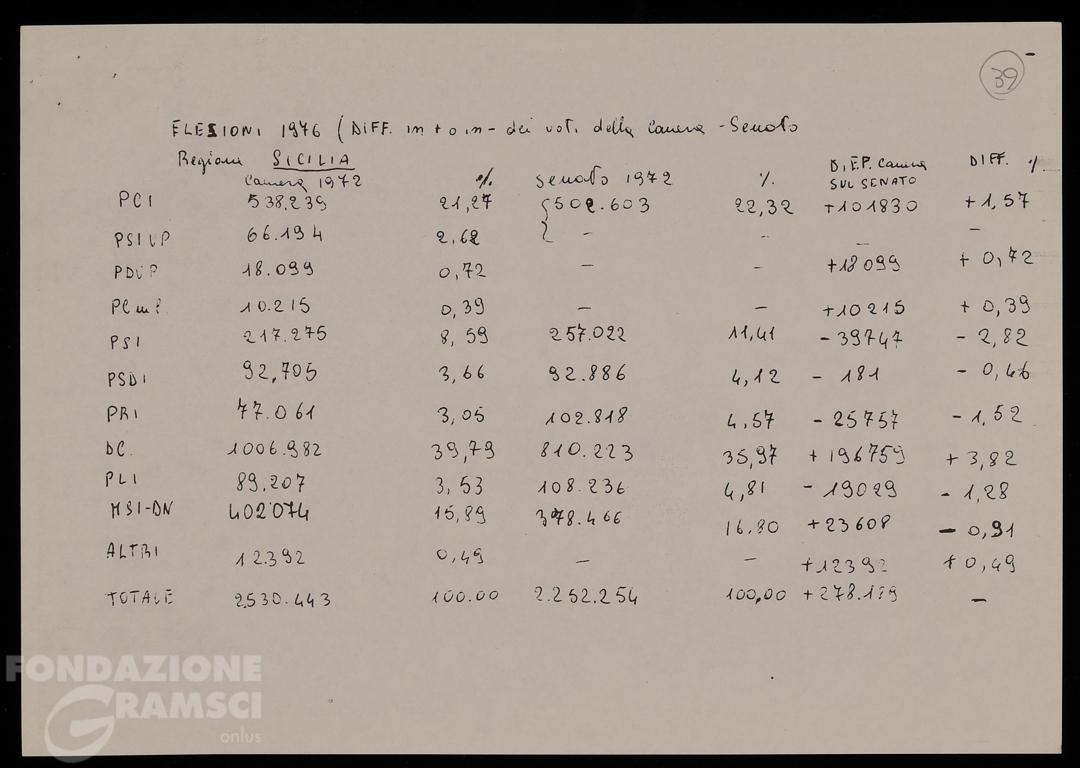 39
ELEZIONI 1976 (DIFF. in + o in - dei voti della Camera - Senato
Regione SICILIA
Camera 1972 % Senato 1972 % DIFF. Camera SUL SENATO DIFF. %
PCI 538.239 21,27 502.603 22,32 +101830 + 1,57
PSIUP 66.194 2,62 - - - -
PDUP 18.099 0,72 - - +18099 + 0,72
PCml 10.215 0,39 - - +10215 + 0,39
PSI 217.275 8,59 257.022 11,41 - 39747 - 2,82
PSDI 92,705 3,66 92.886 4,12 - 181 - 0,46
PRI 77.061 3,05 102.818 4,57 - 25757 - 1,52
DC. 1006.982 39,79 810.223 35,97 + 196759 + 3,82
PLI 89.207 3,53 108.236 4,81 - 19029 - 1,28
MSI-DN 402074 15,89 378.466 16.80 +23608 - 0,91
ALTRI 12.392 0,49 - - +12392 + 0,49
TOTALE 2.530.443 100.00 2.252.254 100,00 + 278.189 -
FONDAZIONE
GRAMSCI
onlus